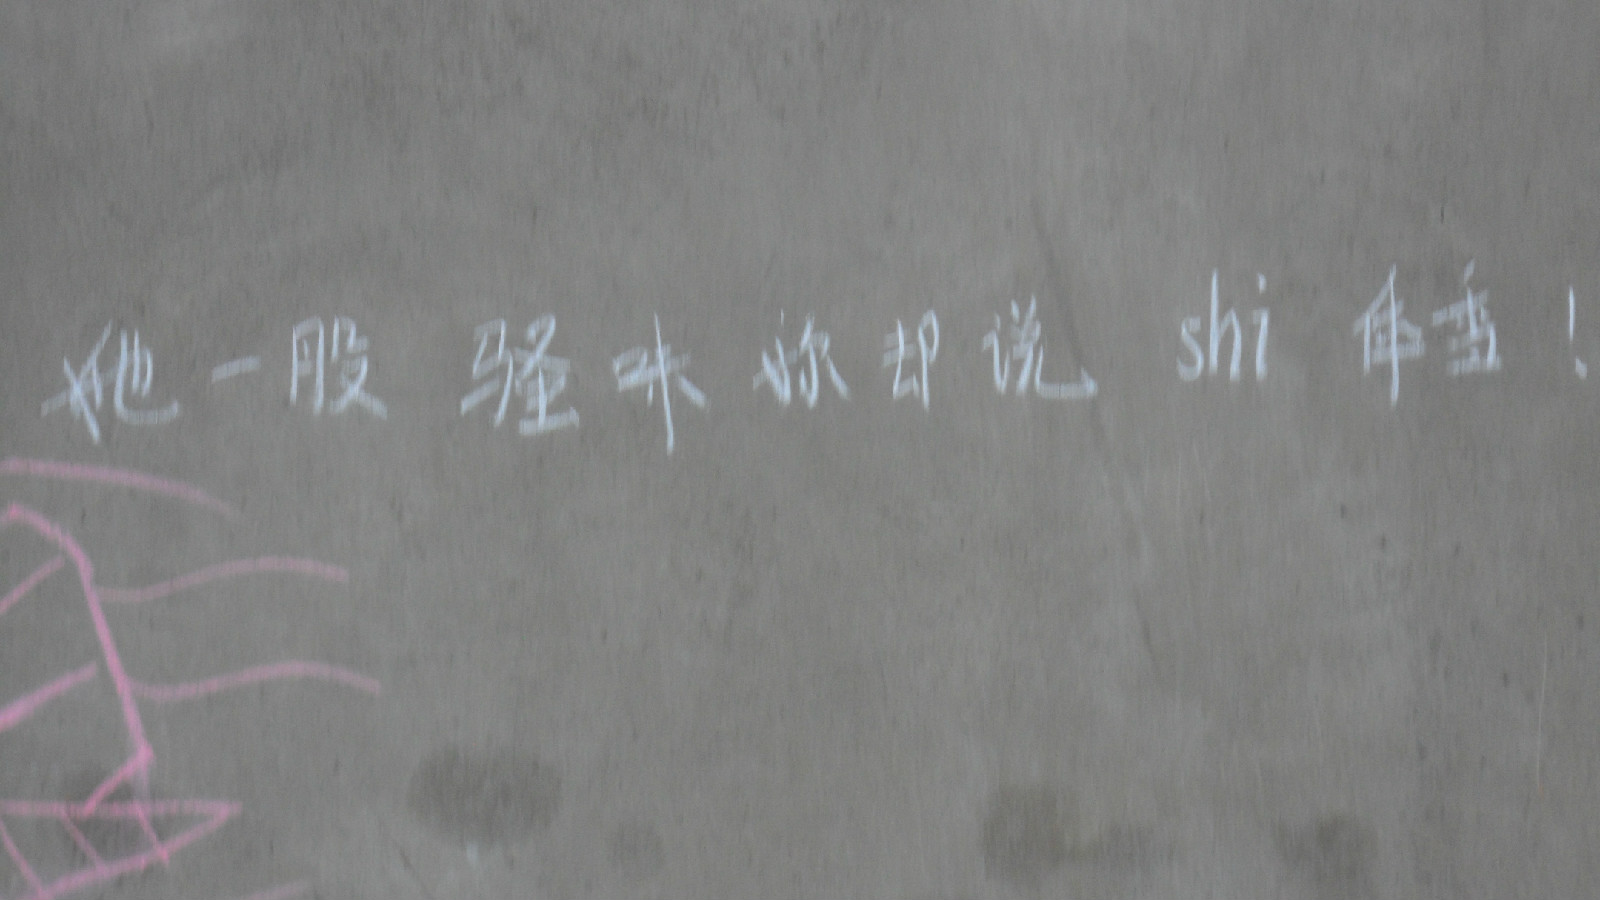 她一股 骚味 你却说 shi 体香!